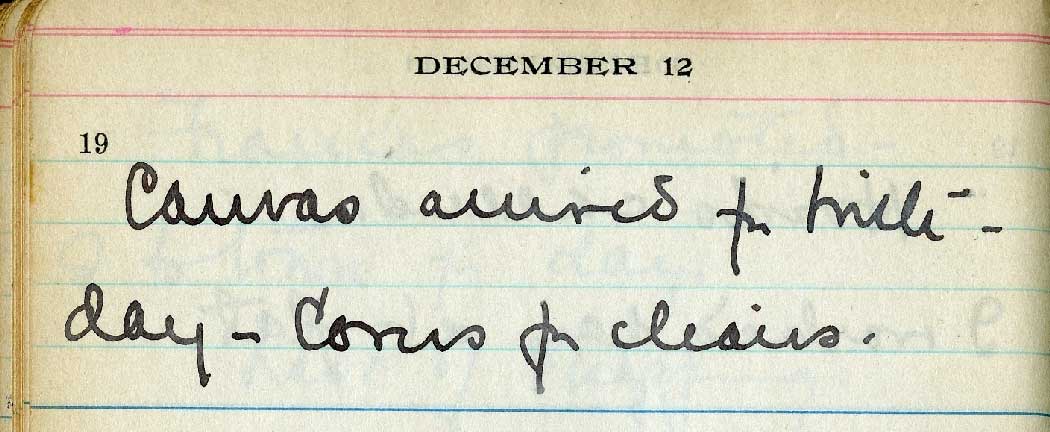 DECEMBER 12
19
Canvas arrived for birth-
day - Covers for chairs.